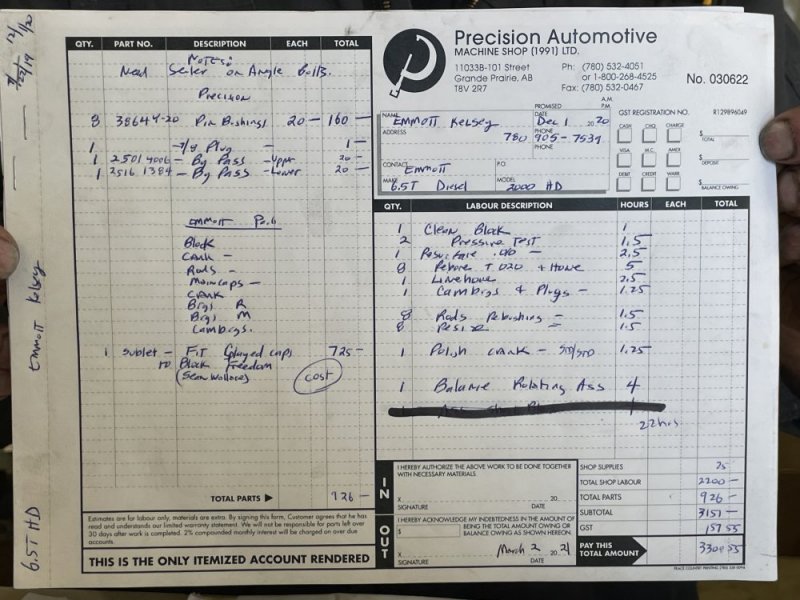 Precision Automotive
MACHINE SHOP (1991) LTD.
11033B-101 Street
Grande Prairie, AB
T8V 2R7
Ph: (780) 532-4051
or 1-800-268-4525
Fax: (780) 532-0467
No. 030622
NAME Emmott Kelsey
PROMISED A.M. P.M.
DATE Dec 1 20 20
ADDRESS
PHONE 780 905-7539
PHONE
CONTACT Emmott
P.O.
MAKE 6.5T Diesel
MODEL 2000 HD
GST REGISTRATION NO. R129896049
CASH CHQ CHARGE
VISA M.C. AMEX
DEBIT CREDIT WARR
$ TOTAL
$ DEPOSIT
$ BALANCE OWING
QTY. PART NO. DESCRIPTION EACH TOTAL
Notes:
Need Sealer on Angle Bolts
Precision
8 38644-20 Pin Bushings 20 - 160 -
1 Plug 1 -
1 25014006 - By Pass - Upper 20 -
1 2516.1384 - By Pass - Lower 20 -
Emmott P.O.
Block
Crank -
Rods -
Maincaps -
Crank
Brgs R
Brgs M
Cambrgs.
1 Sublet - Fit Splayed caps 725 -
to Block Freedom
(Sean Wallace) Cost
TOTAL PARTS 926 -
QTY. LABOUR DESCRIPTION HOURS EACH TOTAL
1 Clean Block 1
2 Pressure Test 1.5
1 Resurface .010 - 2.5
8 Rebore + 020 + Hone 5
1 Linehone 2.5
1 Cambrgs & Plugs - 1.25
8 Rods Rebushing - 1.5
8 Resize - 1.5
1 Polish Crank - STD/STD 1.25
1 Balance Rotating Ass 4
22 hrs
IN
I HEREBY AUTHORIZE THE ABOVE WORK TO BE DONE TOGETHER WITH NECESSARY MATERIALS.
X 20
SIGNATURE DATE
OUT
I HEREBY ACKNOWLEDGE MY INDEBTEDNESS IN THE AMOUNT OF
$ BEING THE TOTAL AMOUNT OWING OR BALANCE OWING AS SHOWN HEREON.
X March 2 20 21
SIGNATURE DATE
SHOP SUPPLIES 25
TOTAL SHOP LABOUR 2200 -
TOTAL PARTS 926 -
SUBTOTAL 3151 -
GST 157.55
PAY THIS TOTAL AMOUNT 3308.55
Estimates are for labour only, materials are extra. By signing this form, Customer agrees he has
read and understands our limited warranty statement. We will not be responsible for parts left over
30 days after work is completed. 2% compounded monthly interest will be charged on over due
accounts.
THIS IS THE ONLY ITEMIZED ACCOUNT RENDERED
Emmott Kelsey
6.5T HD